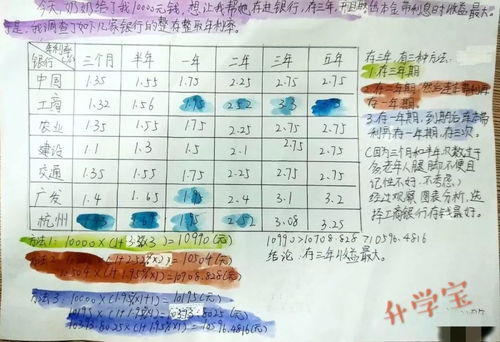 今天,奶奶给了我10000元钱,想让我帮她存进银行,存三年,并且取出本金带利息时收益最大。
于是,我调查了如下几家银行的整存整取年利率。
银行 年利率 三个月 半年 一年 二年 三年 五年
中国 1.35 1.55 1.75 2.25 2.75 2.75
工商 1.32 1.56 1.95 2.52 3.3
农业 1.35 1.55 1.75 2.25 2.75 2.75
建设 1.1 1.3 1.5 2.1 2.75 2.75
交通 1.35 1.55 1.75 2.25 2.75 2.75
广发 1.4 1.65 2.4 3.1 3.2
杭州 2.52 3.08 3.25
存三年,有三种方法:
1.存三年期
2.存二年期,然后连本带利再
存一年期。
3.存一年期,到期后连本带
利再存一年期,存三次。
(因为三个月和半年次数过于
多老年人腿脚不便且
记性不好,不考虑)
经过观察图表分析,选
择工商银行存钱最好。
方法1:10000×(1+3.3%×3)=10990(元)
方法2:10000×(1+2.52%×2)=10504(元)
10504×(1+1.95%×1)=10708.828(元)
方法3:10000×(1+1.95%×1)=10195(元)
10195×(1+1.95%×1)=10393.8025(元)
10393.8025×(1+1.95%×1)=10596.4816(元)
10990>10708.828>10596.4816
结论:存三年收益最大。
升学宝